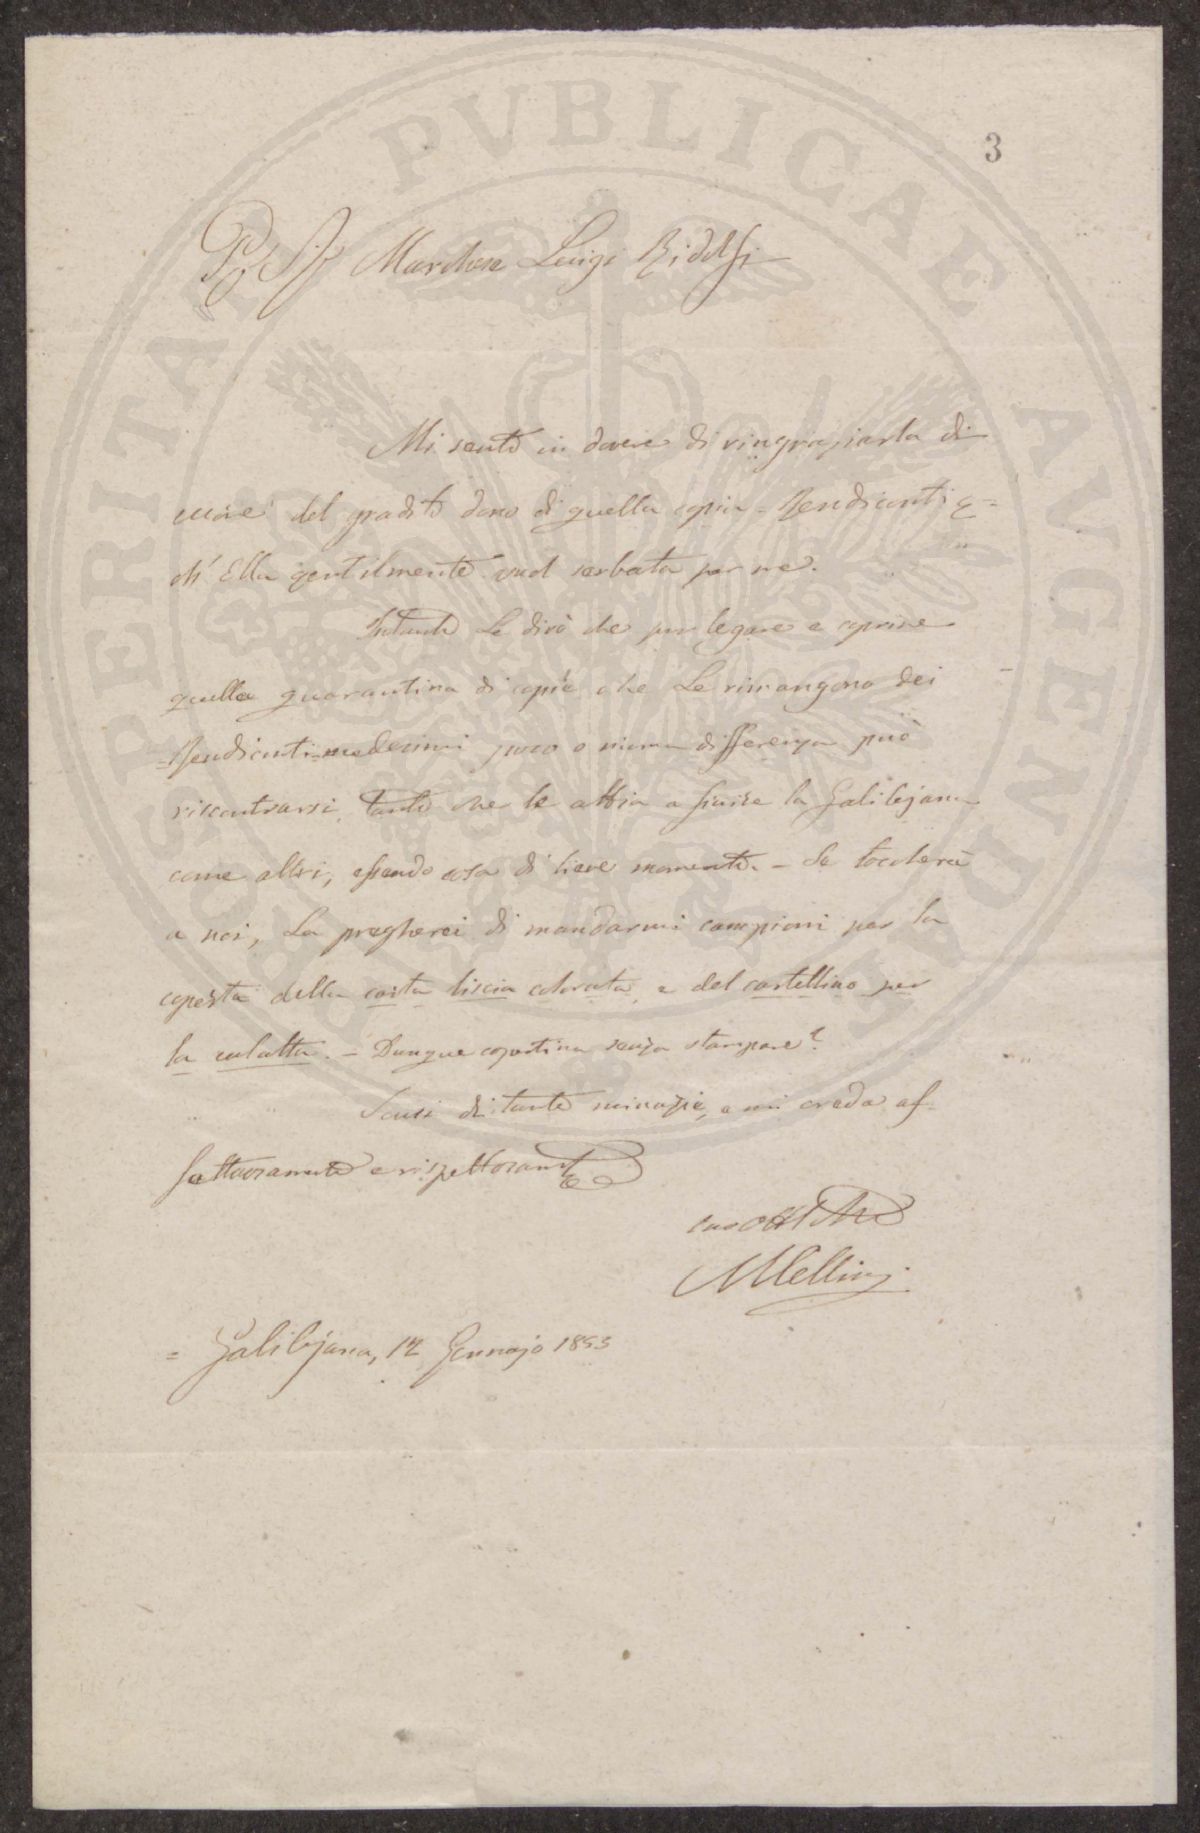 3
Sig. Marchese Luigi Ridolfi
Mi sento in dovere di ringraziarla di
cuore del gradito dono di quella copia = Rendiconti &=
ch' Ella gentilmente vuol serbata per me.
Intanto Le dirò che per legare e coprire
quella quarantina di copie che Le rimangono dei
= Rendiconti = medesimi poco o niuna differenza può
riscontrarsi, tanto che le abbia a finire la Galilejana
come altri, essendo cosa di lieve momento. – Se toccherà
a noi, La pregherei di mandarmi campioni per la
coperta della carta liscia colorata, e del cartellino per
la culatta. – Dunque copertina senza stampare?
Scusi di tante minuzie, e mi creda af-
fettuosamente e rispettosamte
suo
MCellini
= Galilejana, 12 Gennajo 1853
PROSPERITATI PVBLICAE AVGENDAE